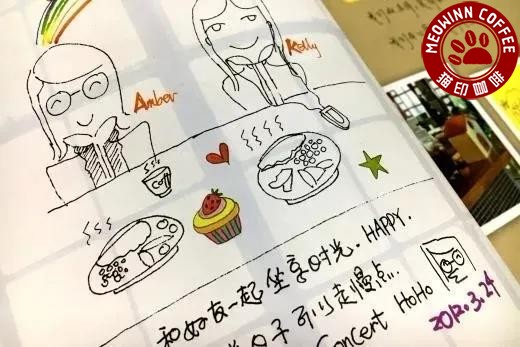 MEOWINN COFFEE
猫印咖啡
Amber
Kelly
和好友一起坐享时光. HAPPY.
日子可以走慢点..
Concert HoHo
2012.3.24